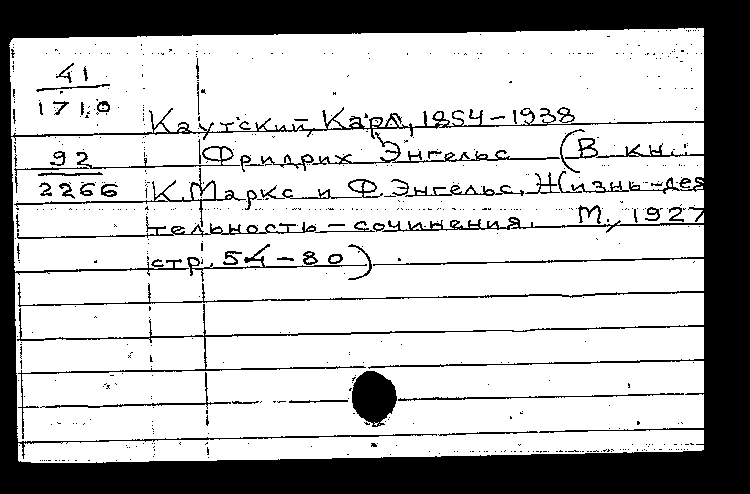 41
1710
Каутский, Карл, 1854-1938
92
2266
Фридрих Энгельс (В кн.:
К. Маркс и Ф. Энгельс. Жизнь-дея
тельность - сочинения. М., 1927
стр. 54-80)